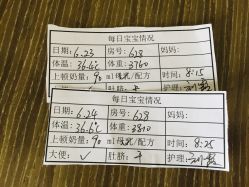 每日宝宝情况
日期：6.23 房号：628 妈妈：
体温：36.4℃ 体重：3760
上顿奶量：90 ml 母乳/配方 时间：8:15
大便：
每日宝宝情况
日期：6.24 房号：628 妈妈：
体温：36.6℃ 体重：3810
上顿奶量：90 ml 母乳/配方 时间：8:25
大便：✓ 肚脐：干 护理：